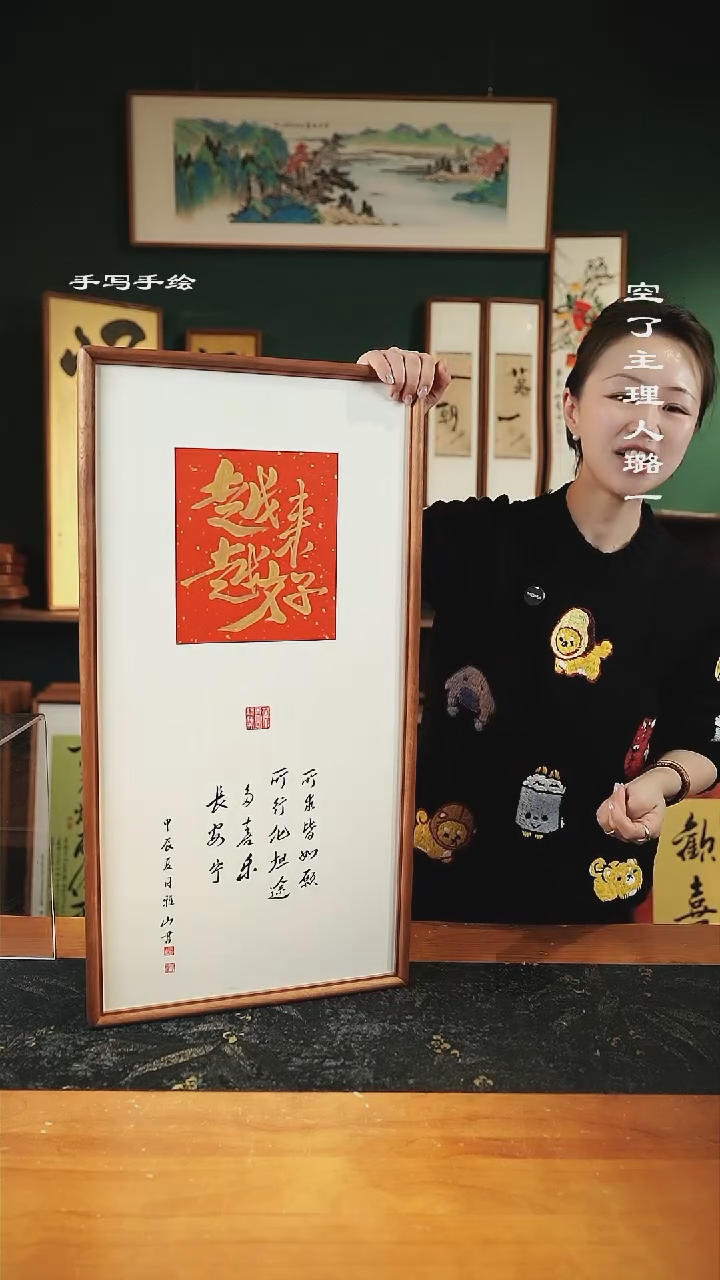 手写手绘
空了主理人璐一
越来
越好
所求皆如愿
所行化坦途
多喜乐
長安宁
甲辰夏月雅山書
朝
落一
歡喜